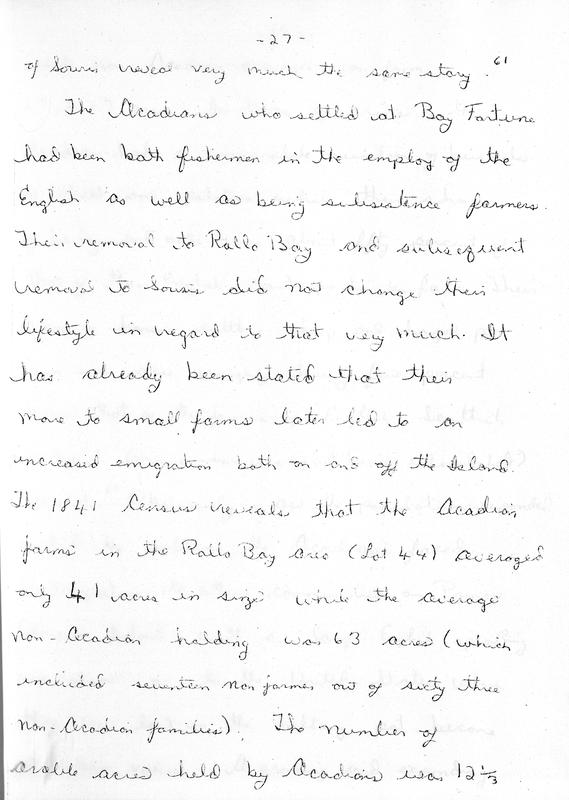 -27-
of Souris reveal very much the same story. 61
The Acadians who settled at Bay Fortune
had been both fishermen in the employ of the
English as well as being subsistence farmers.
Their removal to Rollo Bay and subsequent
removal to Souris did not change their
lifestyle in regard to that very much. It
has already been stated that their
move to small farms later led to an
increased emigration both on and off the Island.
The 1841 Census reveals that the Acadian
farms in the Rollo Bay area (Lot 44) averaged
only 41 acres in size while the average
non-Acadian holding was 63 acres (which
included seventeen non farmers out of sixty three
non-Acadian families). The number of
arable acres held by Acadians was 12 1/3